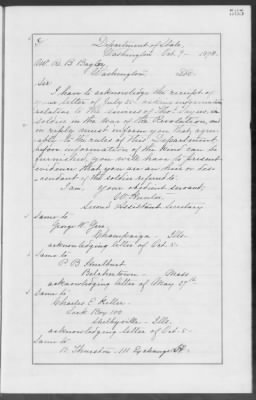 Department of State,
Washington Oct. 7 1878.
W. B. Bagley,
Washington D.C.
Sir
I have to acknowledge the receipt of
your letter of July 25 asking information
relative to the services of
soldier in the War of the Revolution, and
in reply must inform you that agree-
ably to the rules of this Department
before information of the kind can be
furnished you will have to present
evidence that you are an heir or des-
cendant of the soldier referred to.
I am, Your obedient servant,
W. Hunter
Second Assistant Secretary
Same to
George W.
Champaign - Ills.
acknowledging letter of Oct. 5-
Same to
P. B. Hurlburt
Belchertown - Mass
acknowledging letter of May 27th
Same to
Charles E. Keller
Lock Box 100
Shelbyville - Ills.
acknowledging letter of Oct. 5-
Same to
B. Thurston - 111 Exchange St.